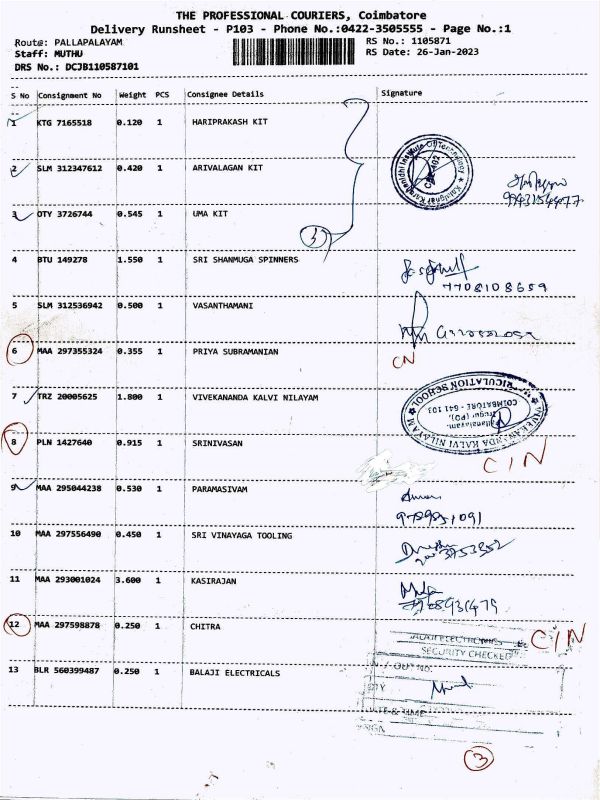 THE PROFESSIONAL COURIERS, Coimbatore
Delivery Runsheet - P103 - Phone No.:0422-3505555 - Page No.:1
Route: PALLAPALAYAM RS No.: 1105871
Staff: MUTHU RS Date: 26-Jan-2023
DRS No.: DCJB110587101
S No Consignment No Weight PCS Consignee Details Signature
1 KTG 7165518 0.120 1 HARIPRAKASH KIT
2 SLM 312347612 0.420 1 ARIVALAGAN KIT
3 OTY 3726744 0.545 1 UMA KIT
3
4 BTU 149278 1.550 1 SRI SHANMUGA SPINNERS
7708108659
5 SLM 312536942 0.500 1 VASANTHAMANI
6 MAA 297355324 0.355 1 PRIYA SUBRAMANIAN
CN
7 TRZ 20005625 1.800 1 VIVEKANANDA KALVI NILAYAM
VIVEKANANDA KALVI NILAYAM
COIMBATORE - 641 103
8 PLN 1427640 0.915 1 SRINIVASAN C/N
9 MAA 295044238 0.530 1 PARAMASIVAM
10 MAA 297556490 0.450 1 SRI VINAYAGA TOOLING
11 MAA 293001024 3.600 1 KASIRAJAN
12 MAA 297598878 0.250 1 CHITRA C/N
BALAJI ELECTRONICS
SECURITY CHECKED
13 BLR 560399487 0.250 1 BALAJI ELECTRICALS
OUT NO.
DATE & TIME
SIGN
3